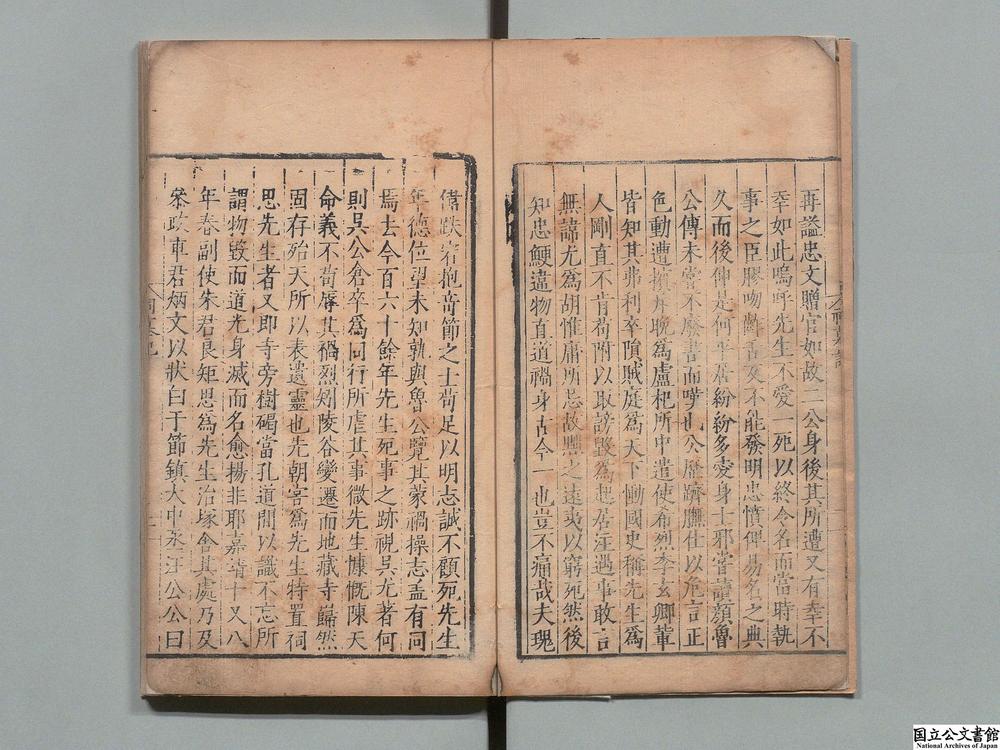 再謚忠文贈官如故二公身後其所遭又有幸不
幸如此嗚呼先生不愛一死以終令名而當時執
事之臣膠吻齰舌又不能發明忠憤俾易名之典
久而後伸是何平居紛紛多受身士邪嘗讀顏魯
公傳未嘗不廢書而嘆也公歷躋膴仕以危言正
色動遭擯斥晚為盧杞所中遣使希烈李玄卿輩
皆知其弗利卒隕賊庭為天下慟國史稱先生為
人剛直不肯苟附以取謗毀為起居注遇事敢言
無諱尤為胡惟庸所忌故憩之遠夷以窮死然後
知忠鯁違物直道禍身古今一也豈不痛哉夫瑰
偉跌宕抱奇節之士苟足以明志誠不顧死先生
年德位望未知孰與魯公覽其蒙禍操志盖有同
焉去今百六十餘年先生死事之跡視吳尤著何
則吳公倉卒為同行所虐其事微先生慷慨陳天
命義不苟辱其禍烈矧陵谷變遷而地藏寺巋然
固存殆天所以表遺靈也先朝嘗為先生特置祠
思先生者又即寺旁樹碣當孔道間以識不忘所
謂物毀而道光身滅而名愈揚非耶嘉靖十又八
年春副使朱君良矩思為先生治塚舍其處乃及
叅政車君炳文以狀白于節鎮大中丞汪公公曰
国立公文書館
National Archives of Japan